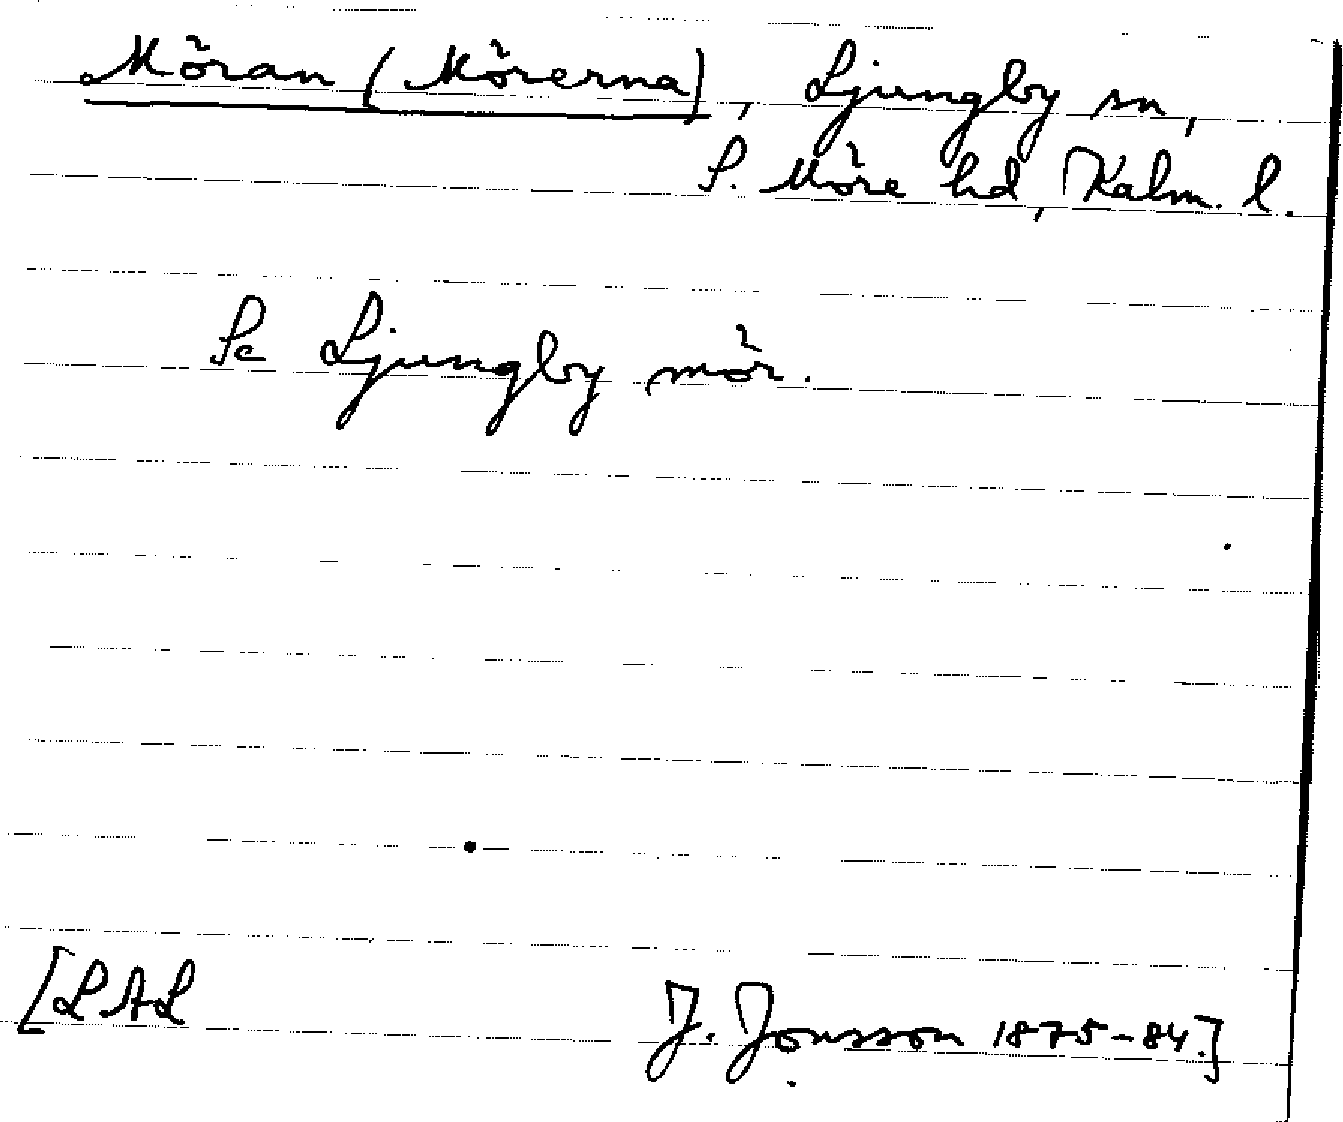 Möran (Mörerna), Ljungby sn,
S. Möre hd, Kalm. l.
Se Ljungby mör.
[LAL J. Jonsson 1875-84.]